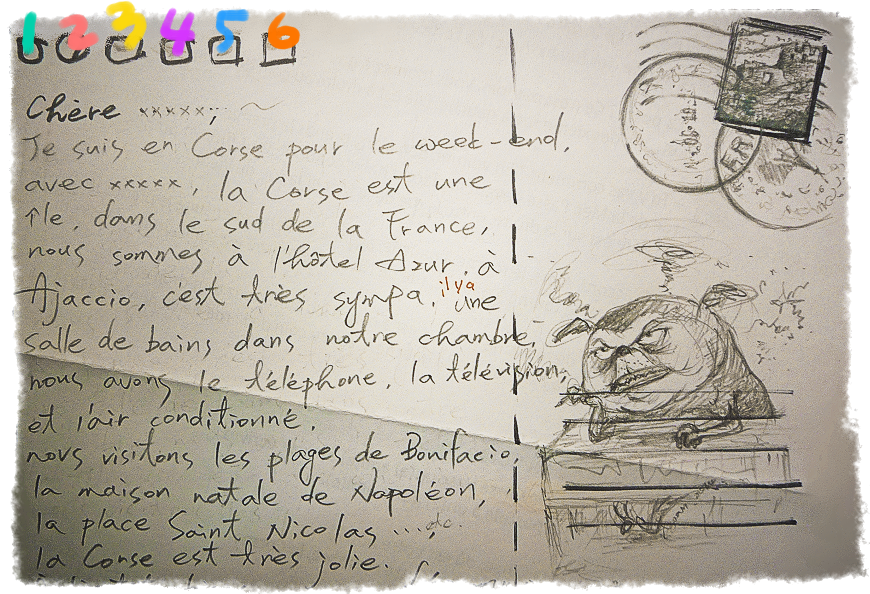 1 2 3 4 5 6
Chère xxxxx,
Je suis en Corse pour le week-end,
avec xxxxx, la Corse est une
île, dans le sud de la France,
nous sommes à l'hôtel Azur, à
Ajaccio, c'est très sympa, il y a une
salle de bains dans notre chambre,
nous avons le téléphone, la télévision,
et l'air conditionné.
nous visitons les plages de Bonifacio,
la maison natale de Napoléon,
la place Saint Nicolas ... etc.
la Corse est très jolie.